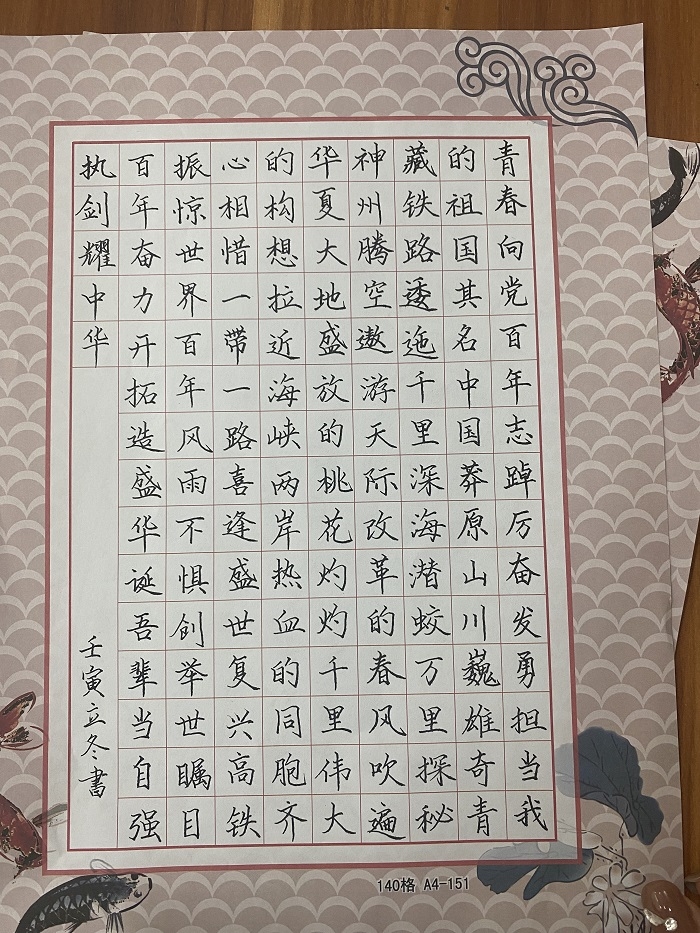 青春向党百年志踔厉奋发勇担当我
的祖国其名中国莽原山川巍雄奇青
藏铁路逶迤千里深海潜蛟万里探秘
神州腾空遨游天际改革的春风吹遍
华夏大地盛放的桃花灼灼千里伟大
的构想拉近海峡两岸热血的同胞齐
心相惜一带一路喜逢盛世复兴高铁
振惊世界百年风雨不惧创举世瞩目
百年奋力开拓造盛华诞吾辈当自强
执剑耀中华
壬寅立冬書
140格 A4-151